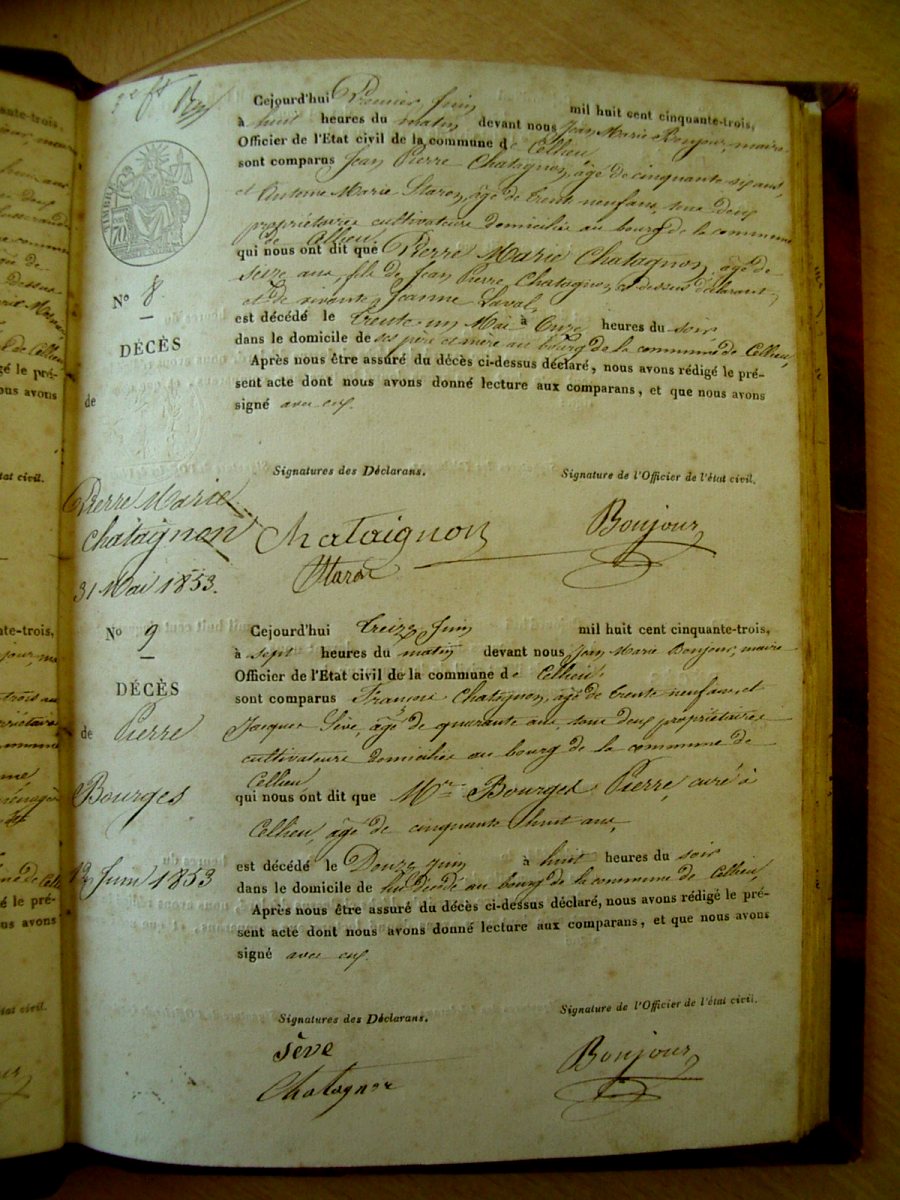 Cejourd'hui Premier Juin mil huit cent cinquante-trois,
à huit heures du matin devant nous Jean Marie Bonjour, maire
Officier de l'Etat civil de la commune de Cellieu
sont comparus Jean Pierre Chatagnon, âgé de cinquante six ans,
et Antoine Marie Staron, âgé de trente neuf ans, tous deux
propriétaires cultivateurs domiciliés au bourg de la commune
de Cellieu.
qui nous ont dit que Pierre Marie Chatagnon, âgé de
seize ans, fils de Jean Pierre Chatagnon ci dessus déclarant,
et de vivante Jeanne Laval,
est décédé le trente un Mai à Onze heures du soir
dans le domicile de ses père et mère au bourg de la commune de Cellieu,
Après nous être assuré du décès ci-dessus déclaré, nous avons rédigé le pré-
sent acte dont nous avons donné lecture aux comparans, et que nous avons
signé avec eux.
TIMBRE
70
No 8
DÉCÈS
de
Pierre Marie
Chataignon
31 Mai 1853.
Signatures des Déclarans.
Signature de l'Officier de l'état civil.
Chataignon
Staron
Bonjour
No 9
DÉCÈS
de Pierre
Bourges
12 Juin 1853
Cejourd'hui treize Juin mil huit cent cinquante-trois,
à sept heures du matin devant nous Jean Marie Bonjour, maire
Officier de l'Etat civil de la commune de Cellieu,
sont comparus François Chatagnon, âgé de trente neuf ans, et
Jacques Sève, âgé de quarante ans, tous deux propriétaires
cultivateurs domiciliés au bourg de la commune de
Cellieu,
qui nous ont dit que Mr Bourges Pierre, curé à
Cellieu, âgé de cinquante huit ans,
est décédé le Douze Juin à huit heures du soir
dans le domicile de lui décédé au bourg de la commune de Cellieu,
Après nous être assuré du décès ci-dessus déclaré, nous avons rédigé le pré-
sent acte dont nous avons donné lecture aux comparans, et que nous avons
signé avec eux.
Signatures des Déclarans.
Signature de l'Officier de l'état civil.
Sève
Chatagnon
Bonjour